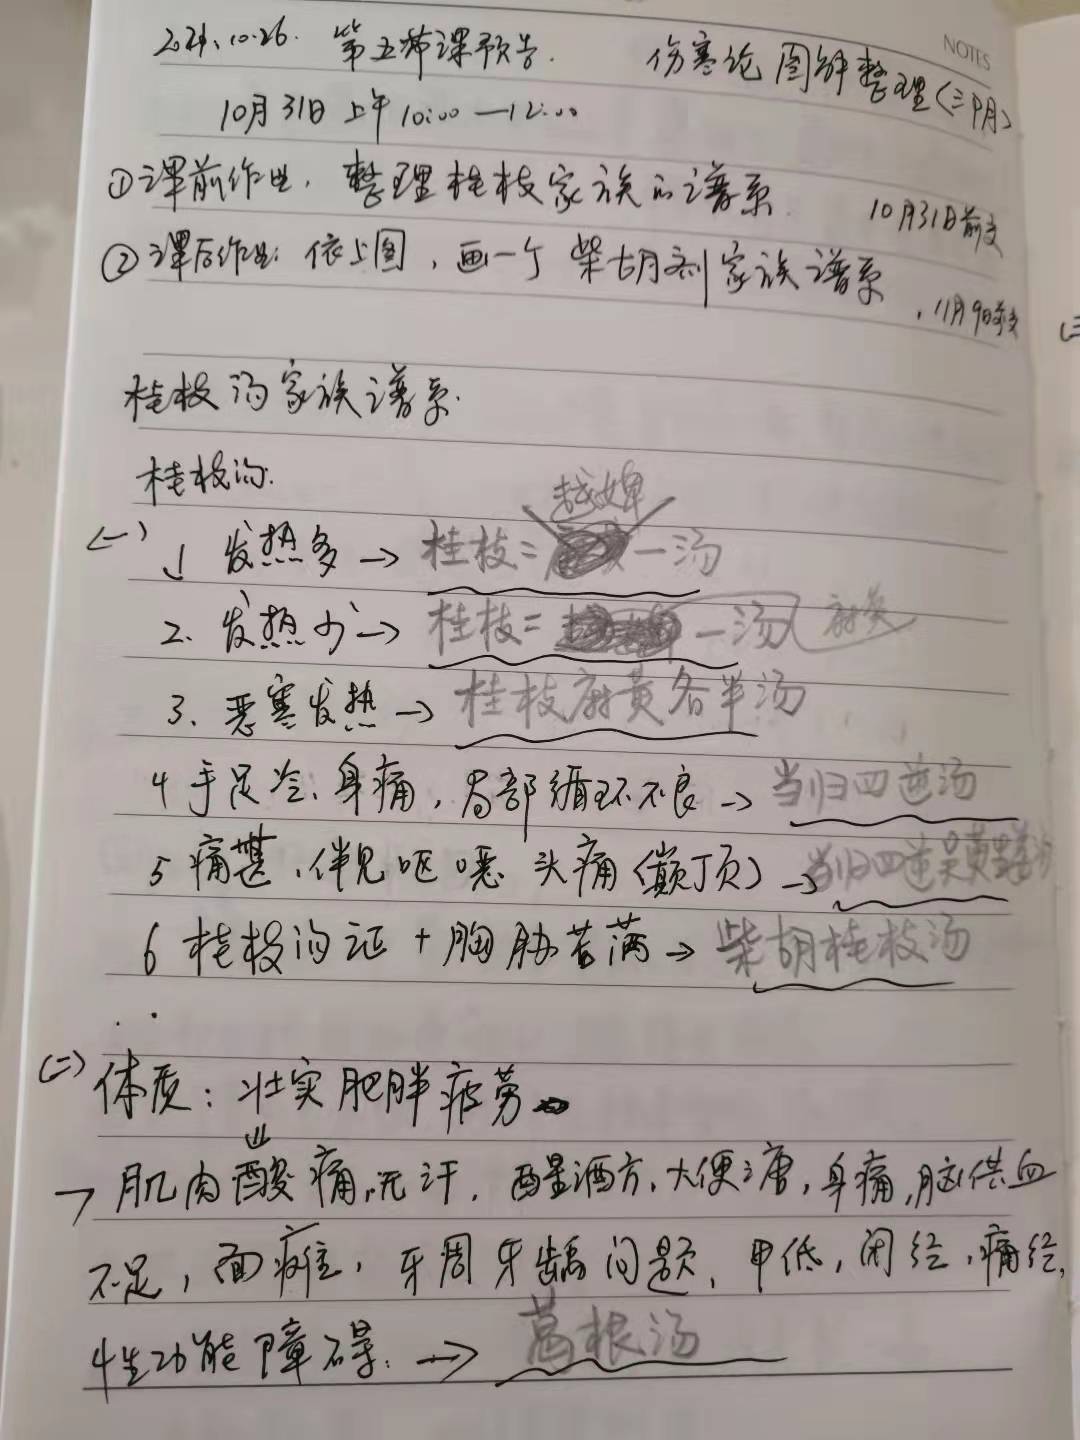 2021.10.26. 第五节课预告. 伤寒论图解整理(三阴)
NOTES
10月31日上午10:00—12:00
①课前作业. 整理桂枝家族的谱系. 10月31日前交
②课后作业: 依上图, 画一个柴胡剂家族谱系, 11月9日前交
桂枝汤家族谱系.
桂枝汤:
越婢
(一) 1 发热多→桂枝二一汤
2. 发热少→桂枝二一汤 麻黄
3. 恶寒发热→桂枝麻黄各半汤
4 手足冷、身痛, 局部循环不良→当归四逆汤
5 痛甚、伴见呕恶 头痛(巅顶)→当归四逆吴萸生姜汤
6 桂枝汤证+胸胁苦满→柴胡桂枝汤
(二) 体质: 壮实肥胖疲劳
肌肉酸痛, 无汗, 醒酒方, 大便溏, 身痛, 脑供血
不足, 面瘫, 牙周牙龋问题, 甲低, 闭经, 痛经,
性功能障碍. →葛根汤